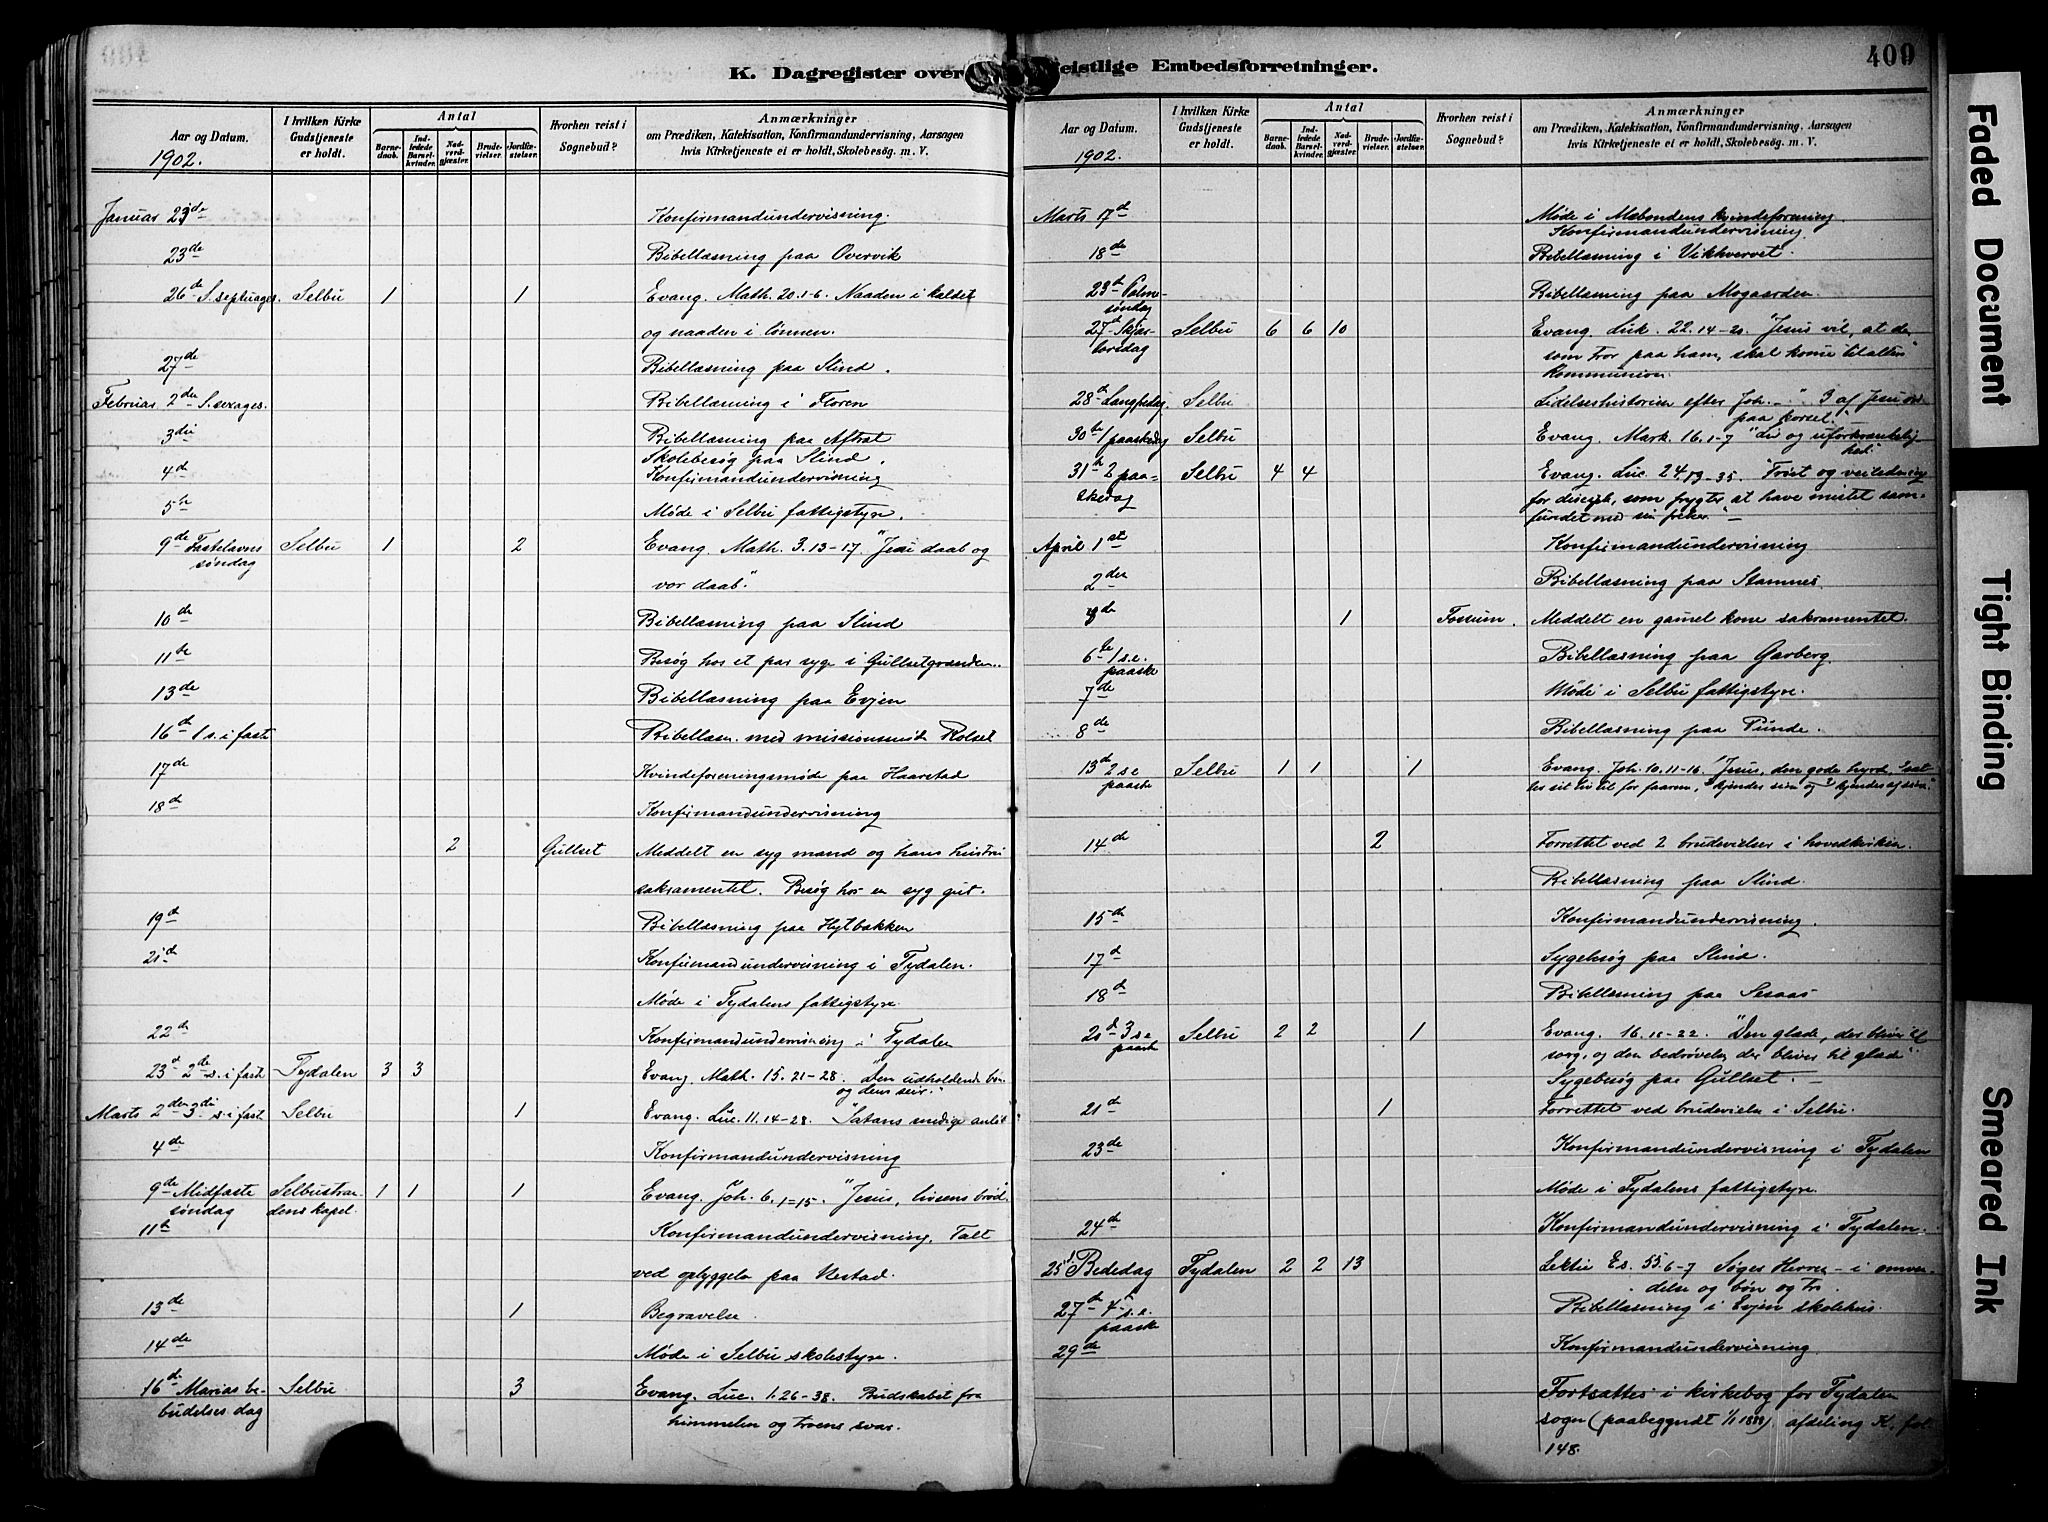 K. Dagregister over
Aar og Datum.
1902.
I hvilken Kirke Gudstjeneste er holdt.
Antal
Barnedaab.
Indledede Barselkvinder.
Nadverdgjæster.
Brudevielser.
Jordfæstelser.
Hvorhen reist i Sognebud?
Anmærkninger
om Prædiken, Katekisation, Konfirmandundervisning, Aarsagen
hvis Kirketjeneste ei er holdt, Skolebesøg. m. V.
Januar 23de Konfirmandundervisning.
23de Bibellæsning paa Overvik
26de S. septuages. Selbu 1 1 Evang. Math. 20.1-6. Naaden i kaldet
og naaden i lønnen.
27de Bibellæsning paa Slind.
Februar 2den S. sexages. Bibellæsning i Floren
3die Bibellæsning paa Aftret
Skolebesøg paa Slind.
4de Konfirmandundervisning
5te Møde i Selbu fattigstyre.
9de Fastelavns Selbu 1 2 Evang. Math. 3.13-17. "Jesu daab og
søndag vor daab".
10de Bibellæsning paa Slind
11te Besøg hos et par syge i Gullsetgrænden.
13de Bibellæsning paa Evjen
16de 1 s. i faste Bibellæsn. med missionsmøde Rolset
17de Kvindeforeningsmøde paa Haarstad
18de Konfirmandundervisning
2 Gullset Meddelt en syg mand og hans hustru
sakramentet. Besøg hos en syg gut.
19de Bibellæsning paa Hytbakken
21de Konfirmandundervisning i Tydalen.
Møde i Tydalens fattigstyre.
22de Konfirmandundervisning i Tydalen
23de 2den s. i faste Tydalen 3 3 Evang. Math. 15.21-28. "Den udholdende bøn
og dens seir."
Marts 2den 3die s. i fast Selbu 1 Evang. Luc. 11.14-28. "Satans
4de Konfirmandundervisning
9de Midfaste Selbustran- 1 1 1 Evang. Joh. 6.1-15. "Jesus, livsens brød.
søndag dens kapel.
11te Konfirmandundervisning. Talt
ved opbyggelse paa Nestad.
13de 1 Begravelse.
14de Møde i Selbu skolestyre.
16de Marias be- Selbu 3 Evang. Luc. 1.26-38. Budskabet fra
budelses dag himmelen og troens svar.
eistlige Embedsforretninger.
409
Aar og Datum.
1902.
I hvilken Kirke Gudstjeneste er holdt.
Antal
Barnedaab.
Indledede Barselkvinder.
Nadverdgjæster.
Brudevielser.
Jordfæstelser.
Hvorhen reist i Sognebud?
Anmærkninger
om Prædiken, Katekisation, Konfirmandundervisning, Aarsagen
hvis Kirketjeneste ei er holdt, Skolebesøg. m. V.
Marts 17de Møde i Mæbondens kvindeforening
Konfirmandundervisning.
18de Bibellæsning i Vikhvervet.
23de Palme- Bibellæsning paa Mogaarden
søndag
27de Skjær- Selbu 6 6 10 Evang. Luk. 22.14-20. "Jesus vil, at de
torsdag som tror paa ham, skal komme til alters"
Kommunion.
28de Langfredag. Selbu Lidelseshistorien efter Joh. 3 af Jesu ord
paa korset.
30te 1 paaskedag Selbu Evang. Mark. 16.1-7
31te 2 paa- Selbu 4 4 Evang. Luc. 24.13-35. "Trøst og veiledning
skedag for disciple, som frygter at have mistet sam-
fundet med sin frelser."
April 1ste Konfirmandundervisning
2den Bibellæsning paa Stamnes.
1 Fossum. Meddelt en gamel kone sakramentet.
6te 1 s.e. Bibellæsning paa Garberg.
paaske
7de Møde i Selbu fattigstyre.
8de Bibellæsning paa Punde.
13de 2 s.e. Selbu 1 1 1 Evang. Joh. 10.11-16. "Jesus, den gode hyrde,
paaske sit liv til for faarene, kjender sine og kjendes af sine."
14de 2 Forrettet ved 2 brudevielser i hovedkirken.
Bibellæsning paa Slind.
15de Konfirmandundervisning.
17de Sygebesøg paa Slind.
18de Bibellæsning paa Sesaas
20de 3 s.e. Selbu 2 2 1 Evang. 16.15-22. "Den glæde, der bliver til
paaske sorg, og den bedrøvelse der bliver til glæde".
Sygebesøg paa Gullset.
21de 1 Forrettet ved brudevielse i Selbu.
23de Konfirmandundervisning i Tydalen
Møde i Tydalens fattigstyre.
24de Konfirmandundervisning i Tydalen.
25de Bededag Tydalen 2 2 13 Lektie Es. 55.6-7 Søges Herren - i omven-
delse og bøn og tro.
27de 4 s.e. Bibellæsning i Evjen skolehus.
paaske
29de Konfirmandundervisning.
Fortsættes i kirkebog for Tydalen
sogn (paabegyndt 1/1 1889) afdeling K. fol.
148.
Faded Document
Tight Binding
Smeared Ink